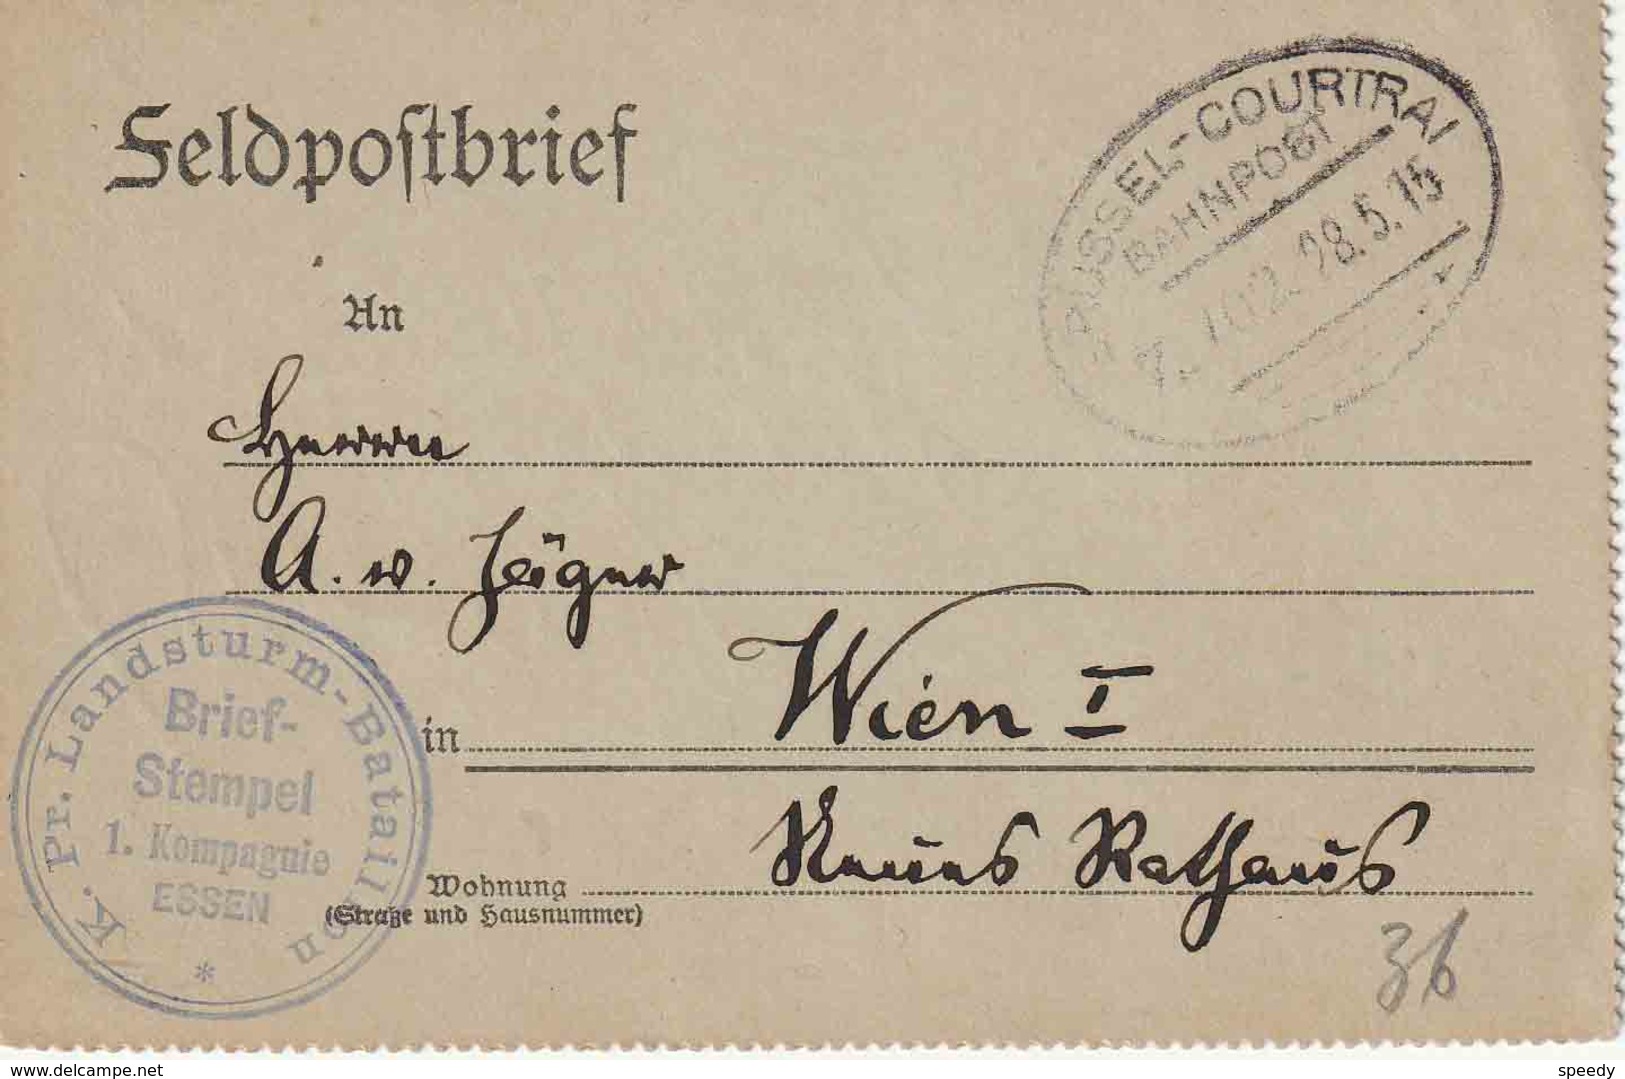 Feldpostbrief
BRÜSSEL-COURTRAI
BAHNPOST
28.5.15
An
Herrn
A. v. Jäger
in Wien I
Neues Rathaus
Wohnung
(Straße und Hausnummer)
K. Pr. Landsturm-Bataillon
Brief-
Stempel
1. Kompagnie
ESSEN
*
36
delcampe.net
speedy